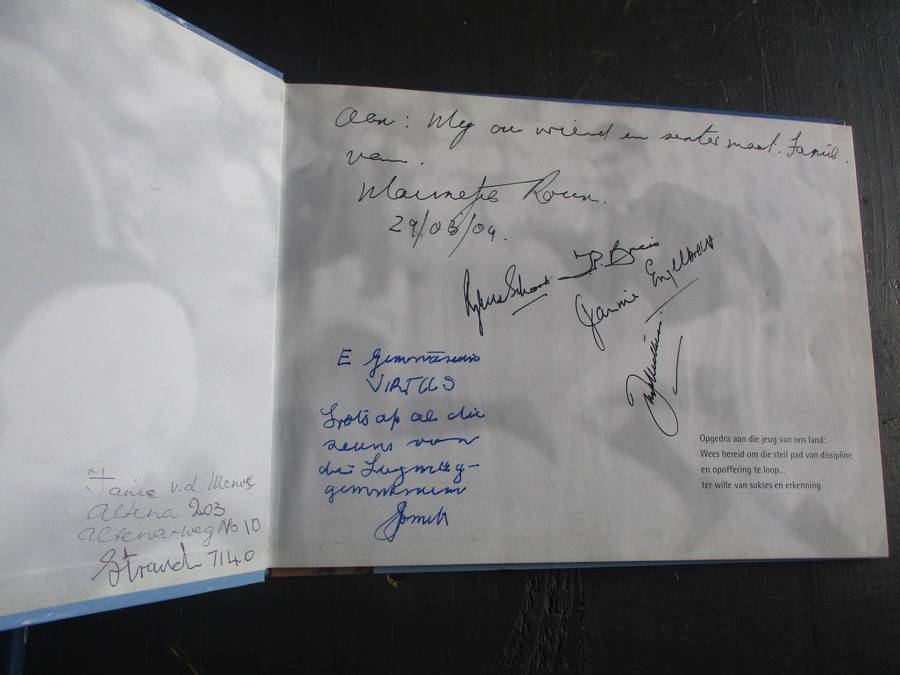 Aan: My ou vriend en senter maat. Fanie.
van.
Mannetjie Roux.
29/03/04.
J.P. Bre
Jannie Engelbrecht
E Gymnasio
VIRTUS
Trots op al die
seuns van
die Lugmag-
gimnasium
Opgedra aan die jeug van ons land:
Wees bereid om die steil pad van dissipline
en opoffering te loop...
ter wille van sukses en erkenning
Fanie v.d. Merwe
Altena 203
Altena-weg No 10
Strand 7140